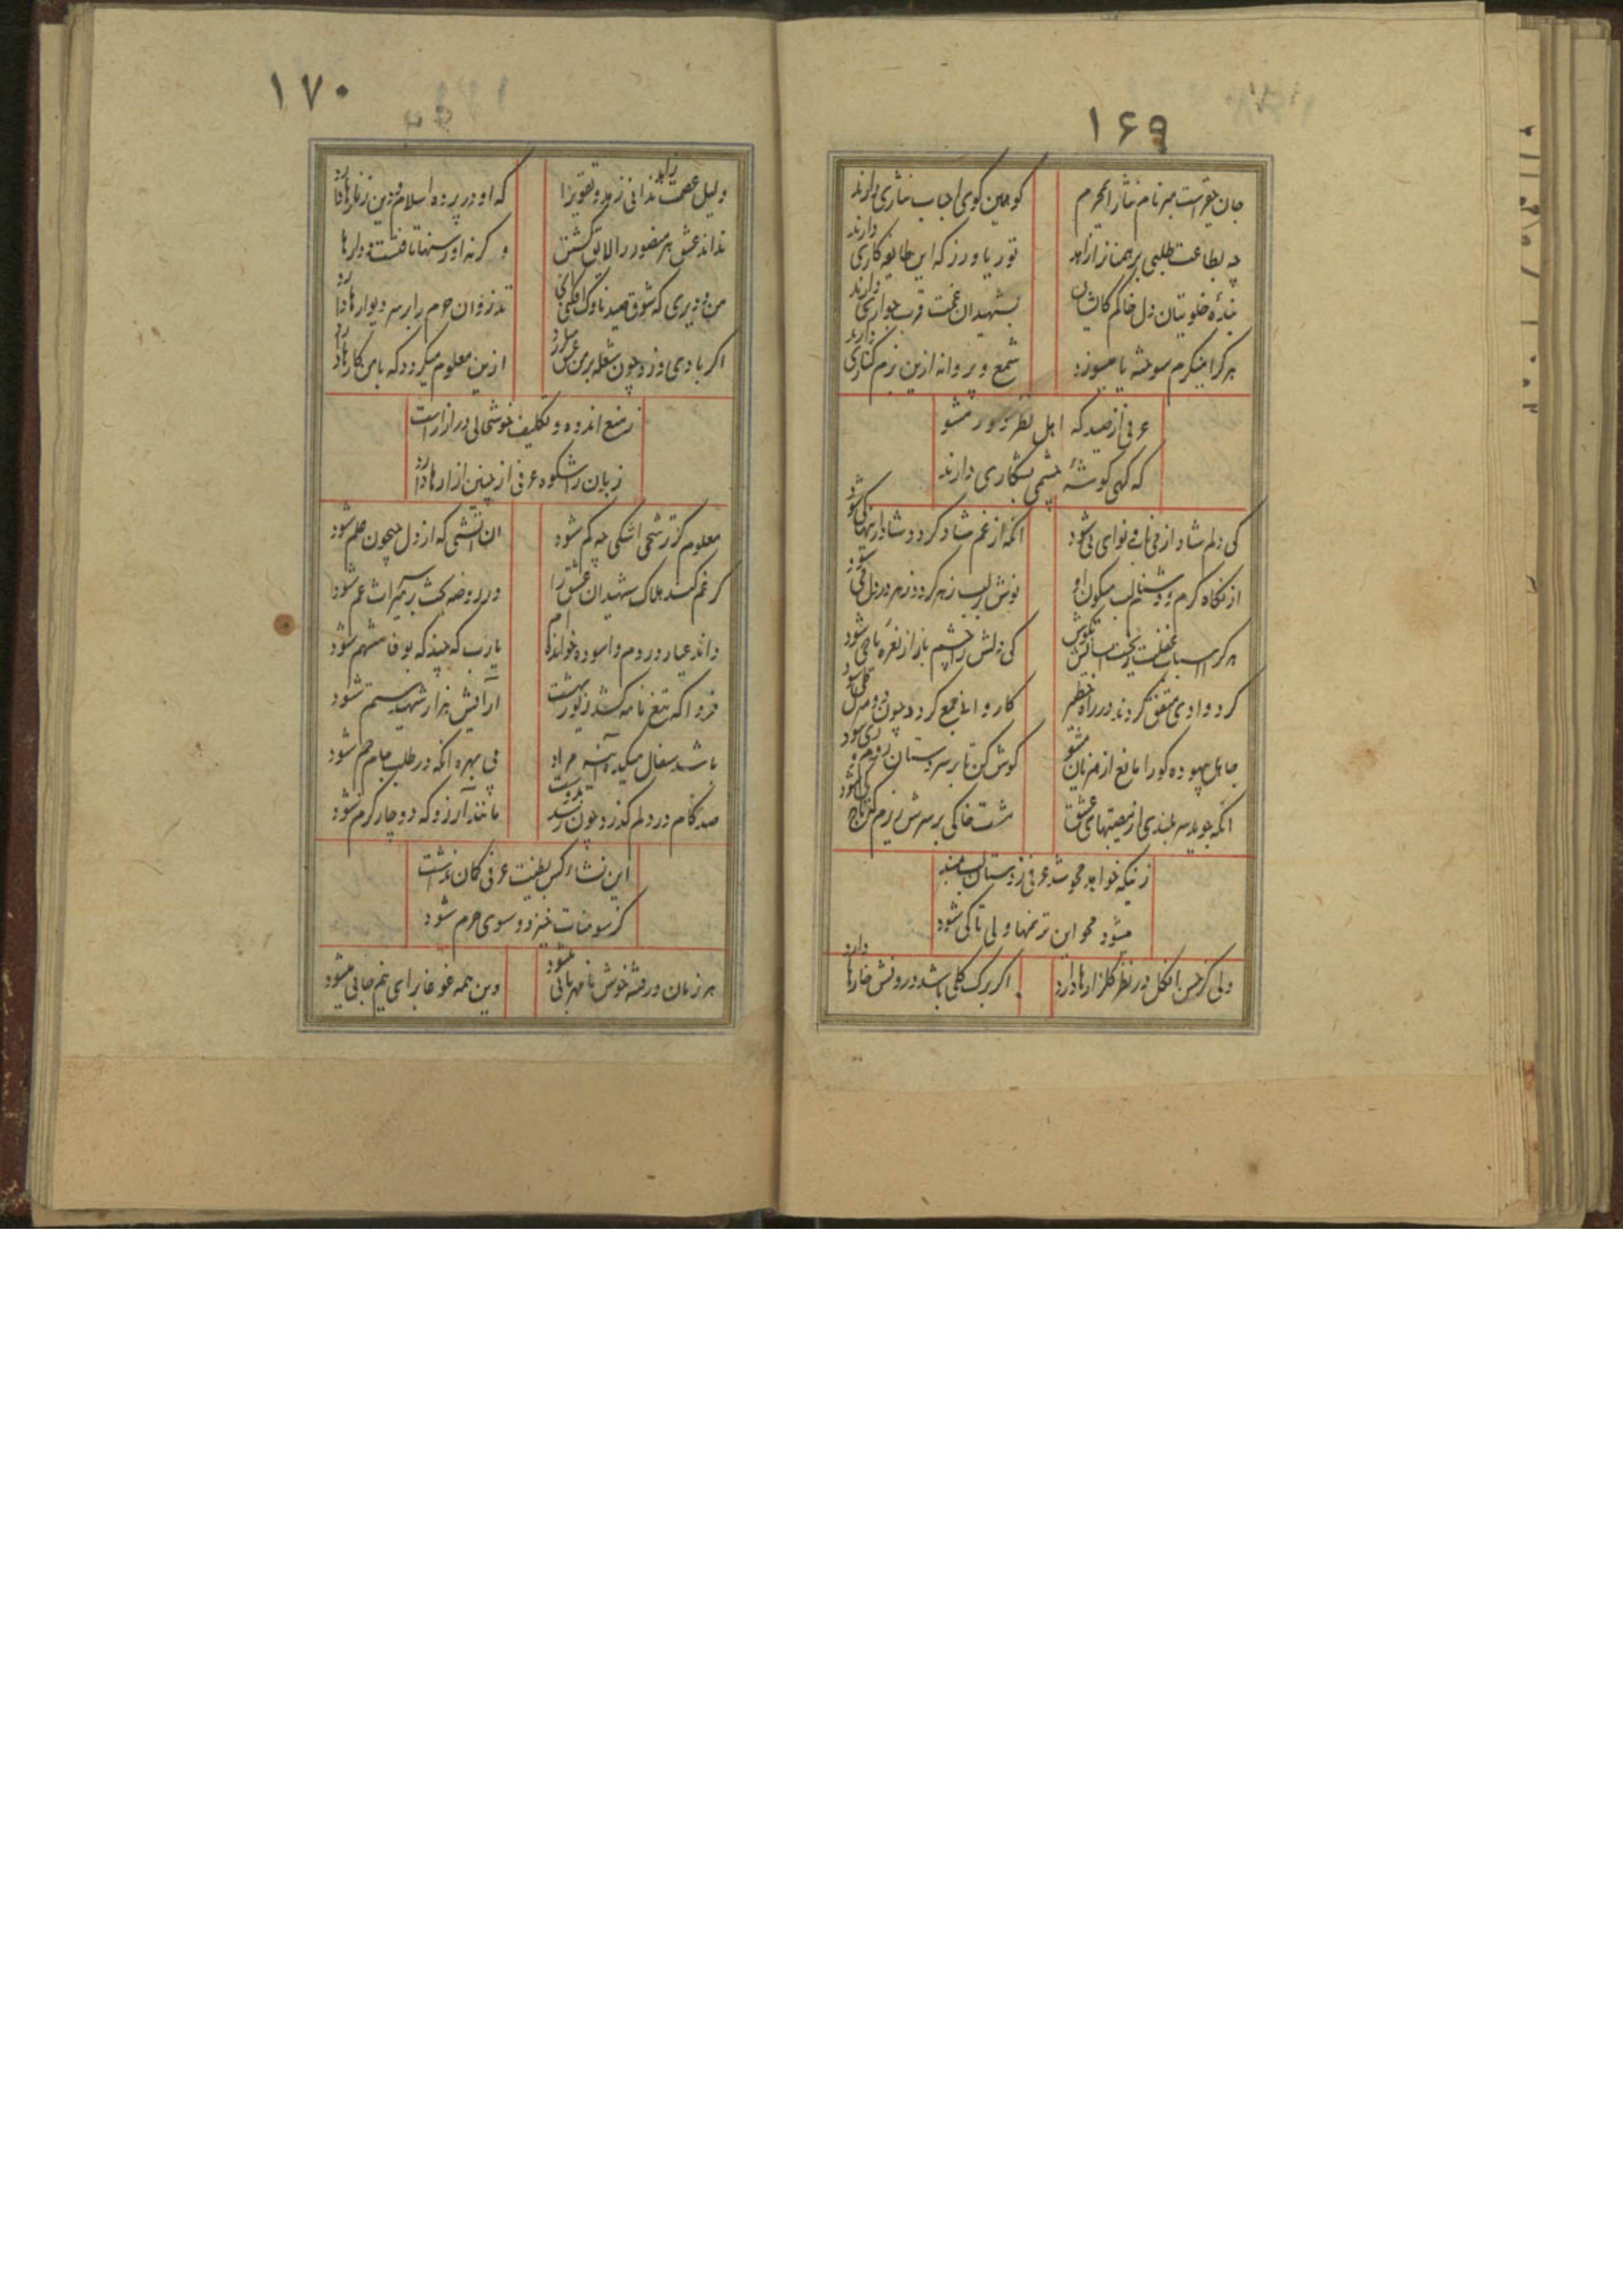 ۱۶۹
جان حقیرست مبر نام نثار ای محرم
کو همین کوی احباب نثاری دارند
چه بطاعت طلبی برهمنانرا زاهد
تو ریا ورز که این طایفه کاری دارند
بنده خلوتیان دل خاکم کایشان
بشهیدان غمت قرب جواری دارند
هر کرا مینگرم سوخته یا میسوزد
شمع و پروانه ازین بزم کناری دارند
عرفی از صید که اهل نظر دور مشو
که کهی کوشه چشمی بشکاری دارند
کی دلم شاد از نی و نوای نی شود
انکه از غم شاد کردد شاد ازینها کی شود
از نکاه کرم و دشنام لب میکون او
نوش در لب زهر کردد زهر در دل می شود
هر کرا سیماب غفلت ریخت در گوش
کی دلش را چشم باز از نعره یا حی شود
کرد وادی متفق کردند در راه خطر
کاروان جمع کردد چون دو منزل طی شود
جاهل بیهوده کو را مانع از هزیان مشو
کوش کن تا بر سر دستان روم و ری شود
انکه جوید سر بلندی از نصیبهای عشق
مشت خاکی بر سرش ریزم که تاج کی شود
زینکه خواهد محو شد عرفی ز دستان لب مبند
میشود محو این ترنمها ولی تا کی شود
ولی کز حسن او کل در نظر کلزارها دارد
اکر برک کلی باشد درونش خارها دارد
۱۷۰
دلیل عصمت زاهد ندانی زهد و تقوی را
که او در پرده اسلام و دین زنارها دارد
نداند عشق هر منصور را لایق کشتن
و کرنه او رسنها تافتست و دارها دارد
من و دیری که شوق صید ناوک افکنی
تذروان حرم را بر سر دیوارها دارد
اکر بادی وزد چون شعله بر من عشق میلرزد
ازین معلوم میکردد که با من کارها دارد
ز منع اندوه و تکلیف خوشحالی در ازارست
زبان شکوه عرفی از چنین ازارها دارد
معلوم کز ترشح اشکی چه کم شود
ان اتشی که از دل جیحون علم شود
کر غم کسد هلاک شهیدان عشق را
در روضه کشت بر سر میراث غم شود
داند عیار دردم و اسوده خواندم
یارب که جند که بوفا متهم شود
فردا که تیغ نامه کشد زیور بهشت
آرایش هزار شهید ستم شود
باشد سفال میکده آئینه مراد
بی بهره انکه در طلب جام جم شود
صد کام در دلم کذرد چون رسد بدوست
مانند آرزو که دوچار کرم شود
این نشاء کس بطینت عرفی کمان نداشت
کز سومنات خیزد و سوی حرم شود
هر زمان در فتنه خوش نامهربانی میشود
وین همه غوغا برای نیم جانی میشود